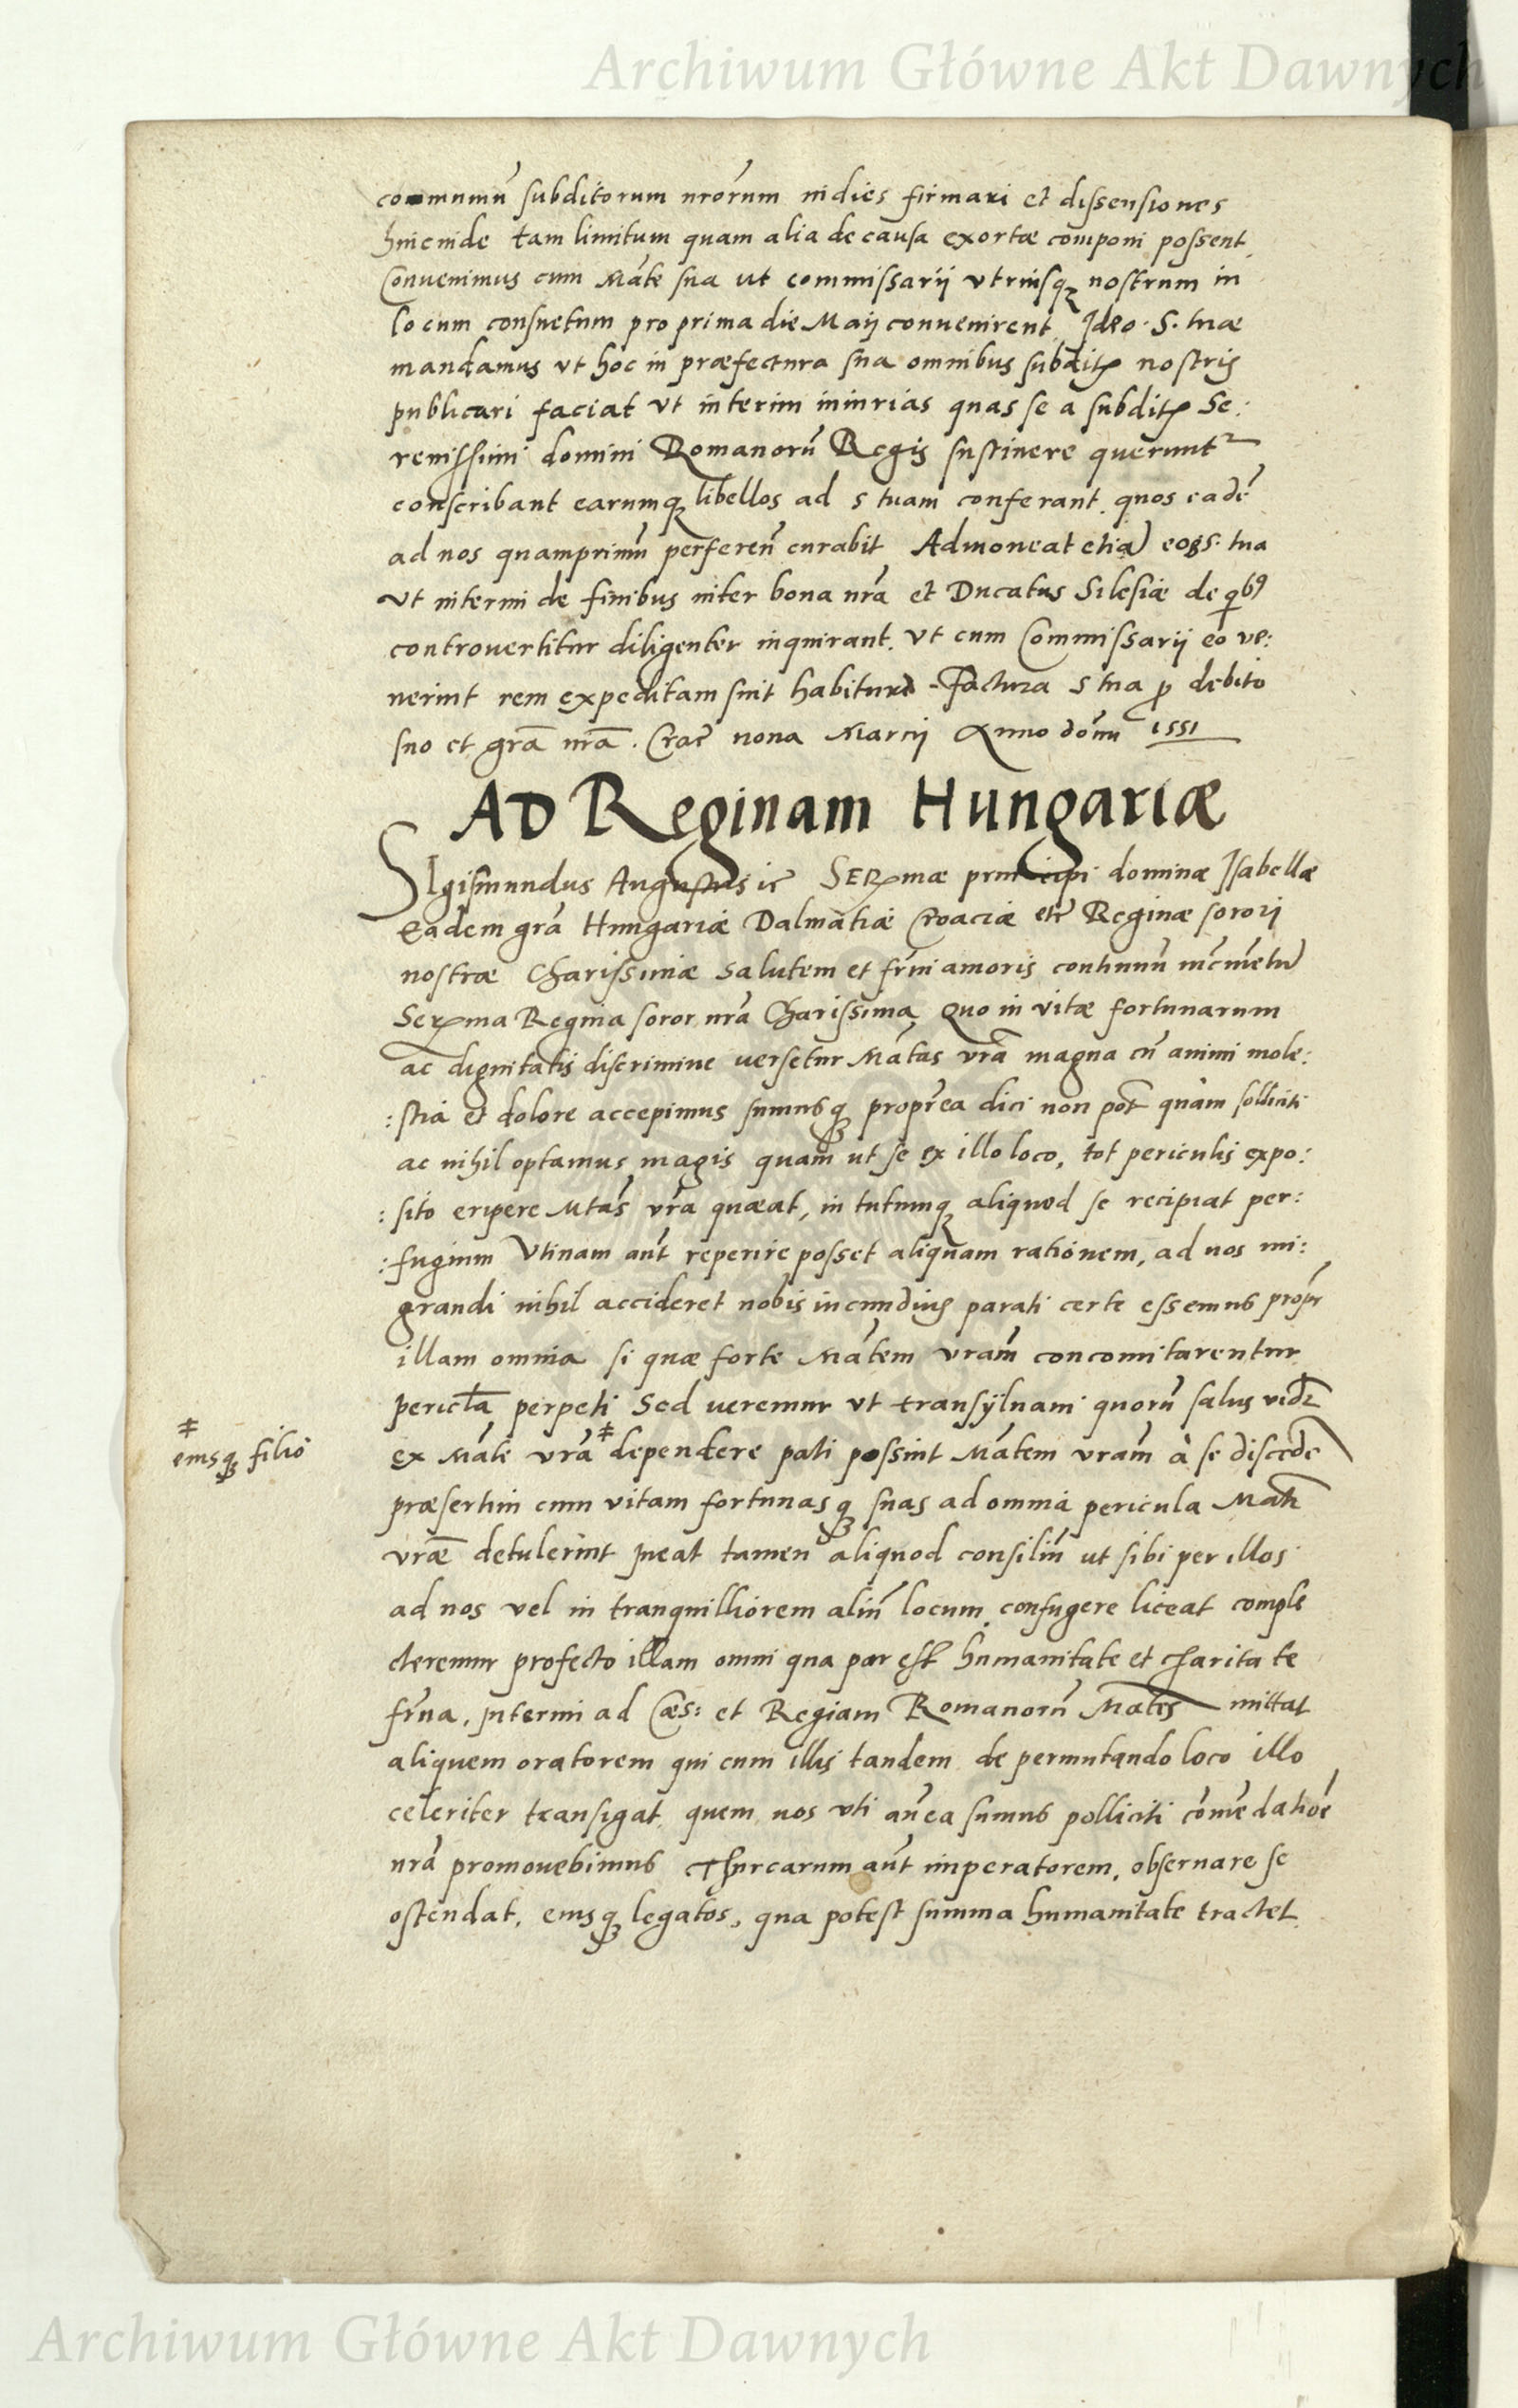 Archiwum Główne Akt Dawnych
communiū subditorum nrōrum indies firmari et dissensiones
hincinde tam limitum quam alia de causa exortæ componi possent.
Convenimus cum Māte sua ut commissarii utriusq; nostrum in
locum consuetum pro prima die Maij convenirent. Ideo S. tuæ
mandamus ut hoc in præfectura sua omnibus subditꝭ nostris
publicari faciat ut interim iniurias quas se a subditꝭ Se:
renissimi domini Romanorū Regis sustinere querunt᷑
conscribant earumq; libellos ad s tuam conferant. quos eadē
ad nos quamprimū perferen̄ curabit Admoneat etiā eos s. tua
ut interim de finibus inter bona nrā et Ducatus Silesiæ de qb9
controvertitur diligenter inquirant. ut cum Commissarii eo ve:
nerint rem expeditam sint habituri Factura s tua ꝓ debito
suo et grā nrā. Crac̄ nona Marcij Anno dōm 1551
AD Reginam Hungariæ
SIgismundus Augustus ic̄ SERꝭmæ principi dominæ Isabellæ
Eadem grā Hungariæ Dalmatiæ Croaciæ etc̄ Reginæ sorori
nostræ Charissimæ salutem et frn̄i amoris continuū incr̄metū
Serꝭma Regina soror nrā Charissima Quo in vitæ fortunarum
ac dignitatis discrimine versetur Mātas vrā magna cū animi mole:
:stia et dolore accepimus sumusq; propr̄ea dici non pot̄ quàm solliciti
ac nihil optamus magis quam ut se ex illo loco, tot periculis expo:
:sito eripere Mtās vrā quæat, in tutumq; aliquod se recipiat per:
:fugium Utinam aūt reperire posset aliquam rationem, ad nos mi:
grandi nihil accideret nobis iucundius parati certe essemus propr̄
illam omnia si quæ forte Mātem vrām concomitarentur
pericl̄a perpeti Sed veremur ut transylvani quorū salus vidr̄
‡
eiusq; filio
ex Māte vrā ‡ dependere pati possint Mātem vrām à se discede
præsertim cum vitam fortunasq; suas ad omnia pericula Māti
vrǣ detulerint Ineat tamen aliquod consiliū ut sibi per illos
ad nos vel in tranquilliorem aliū locum confugere liceat comple
cteremur profecto illam omni qua par est humanitate et charitate
frn̄a, Interim ad Cæs: et Regiam Romanorū Mātes mittat
aliquem oratorem qui cum illis tandem de permutando loco illo
celeriter transigat. quem nos uti an̄ea sumus polliciti cōmēdatiōe
nrā promovebimus Thurcarum aūt imperatorem, observare se
ostendat, eiusq; legatos, qua potest summa humanitate tractet.
Archiwum Główne Akt Dawnych